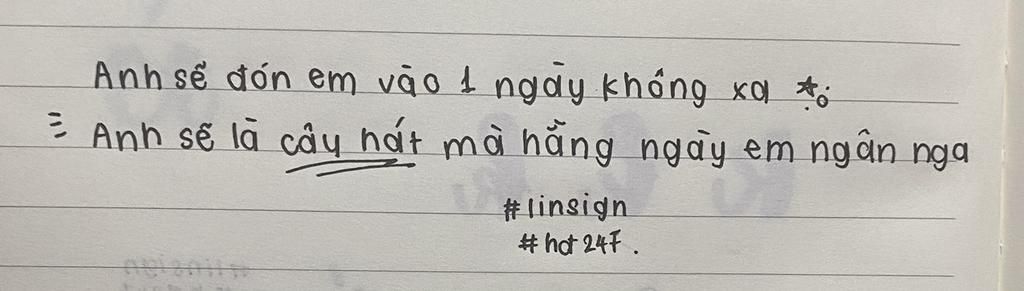 Anh sẽ đón em vào 1 ngày không xa
Anh sẽ là câu hát mà hằng ngày em ngân nga
#linsign
#hot247.